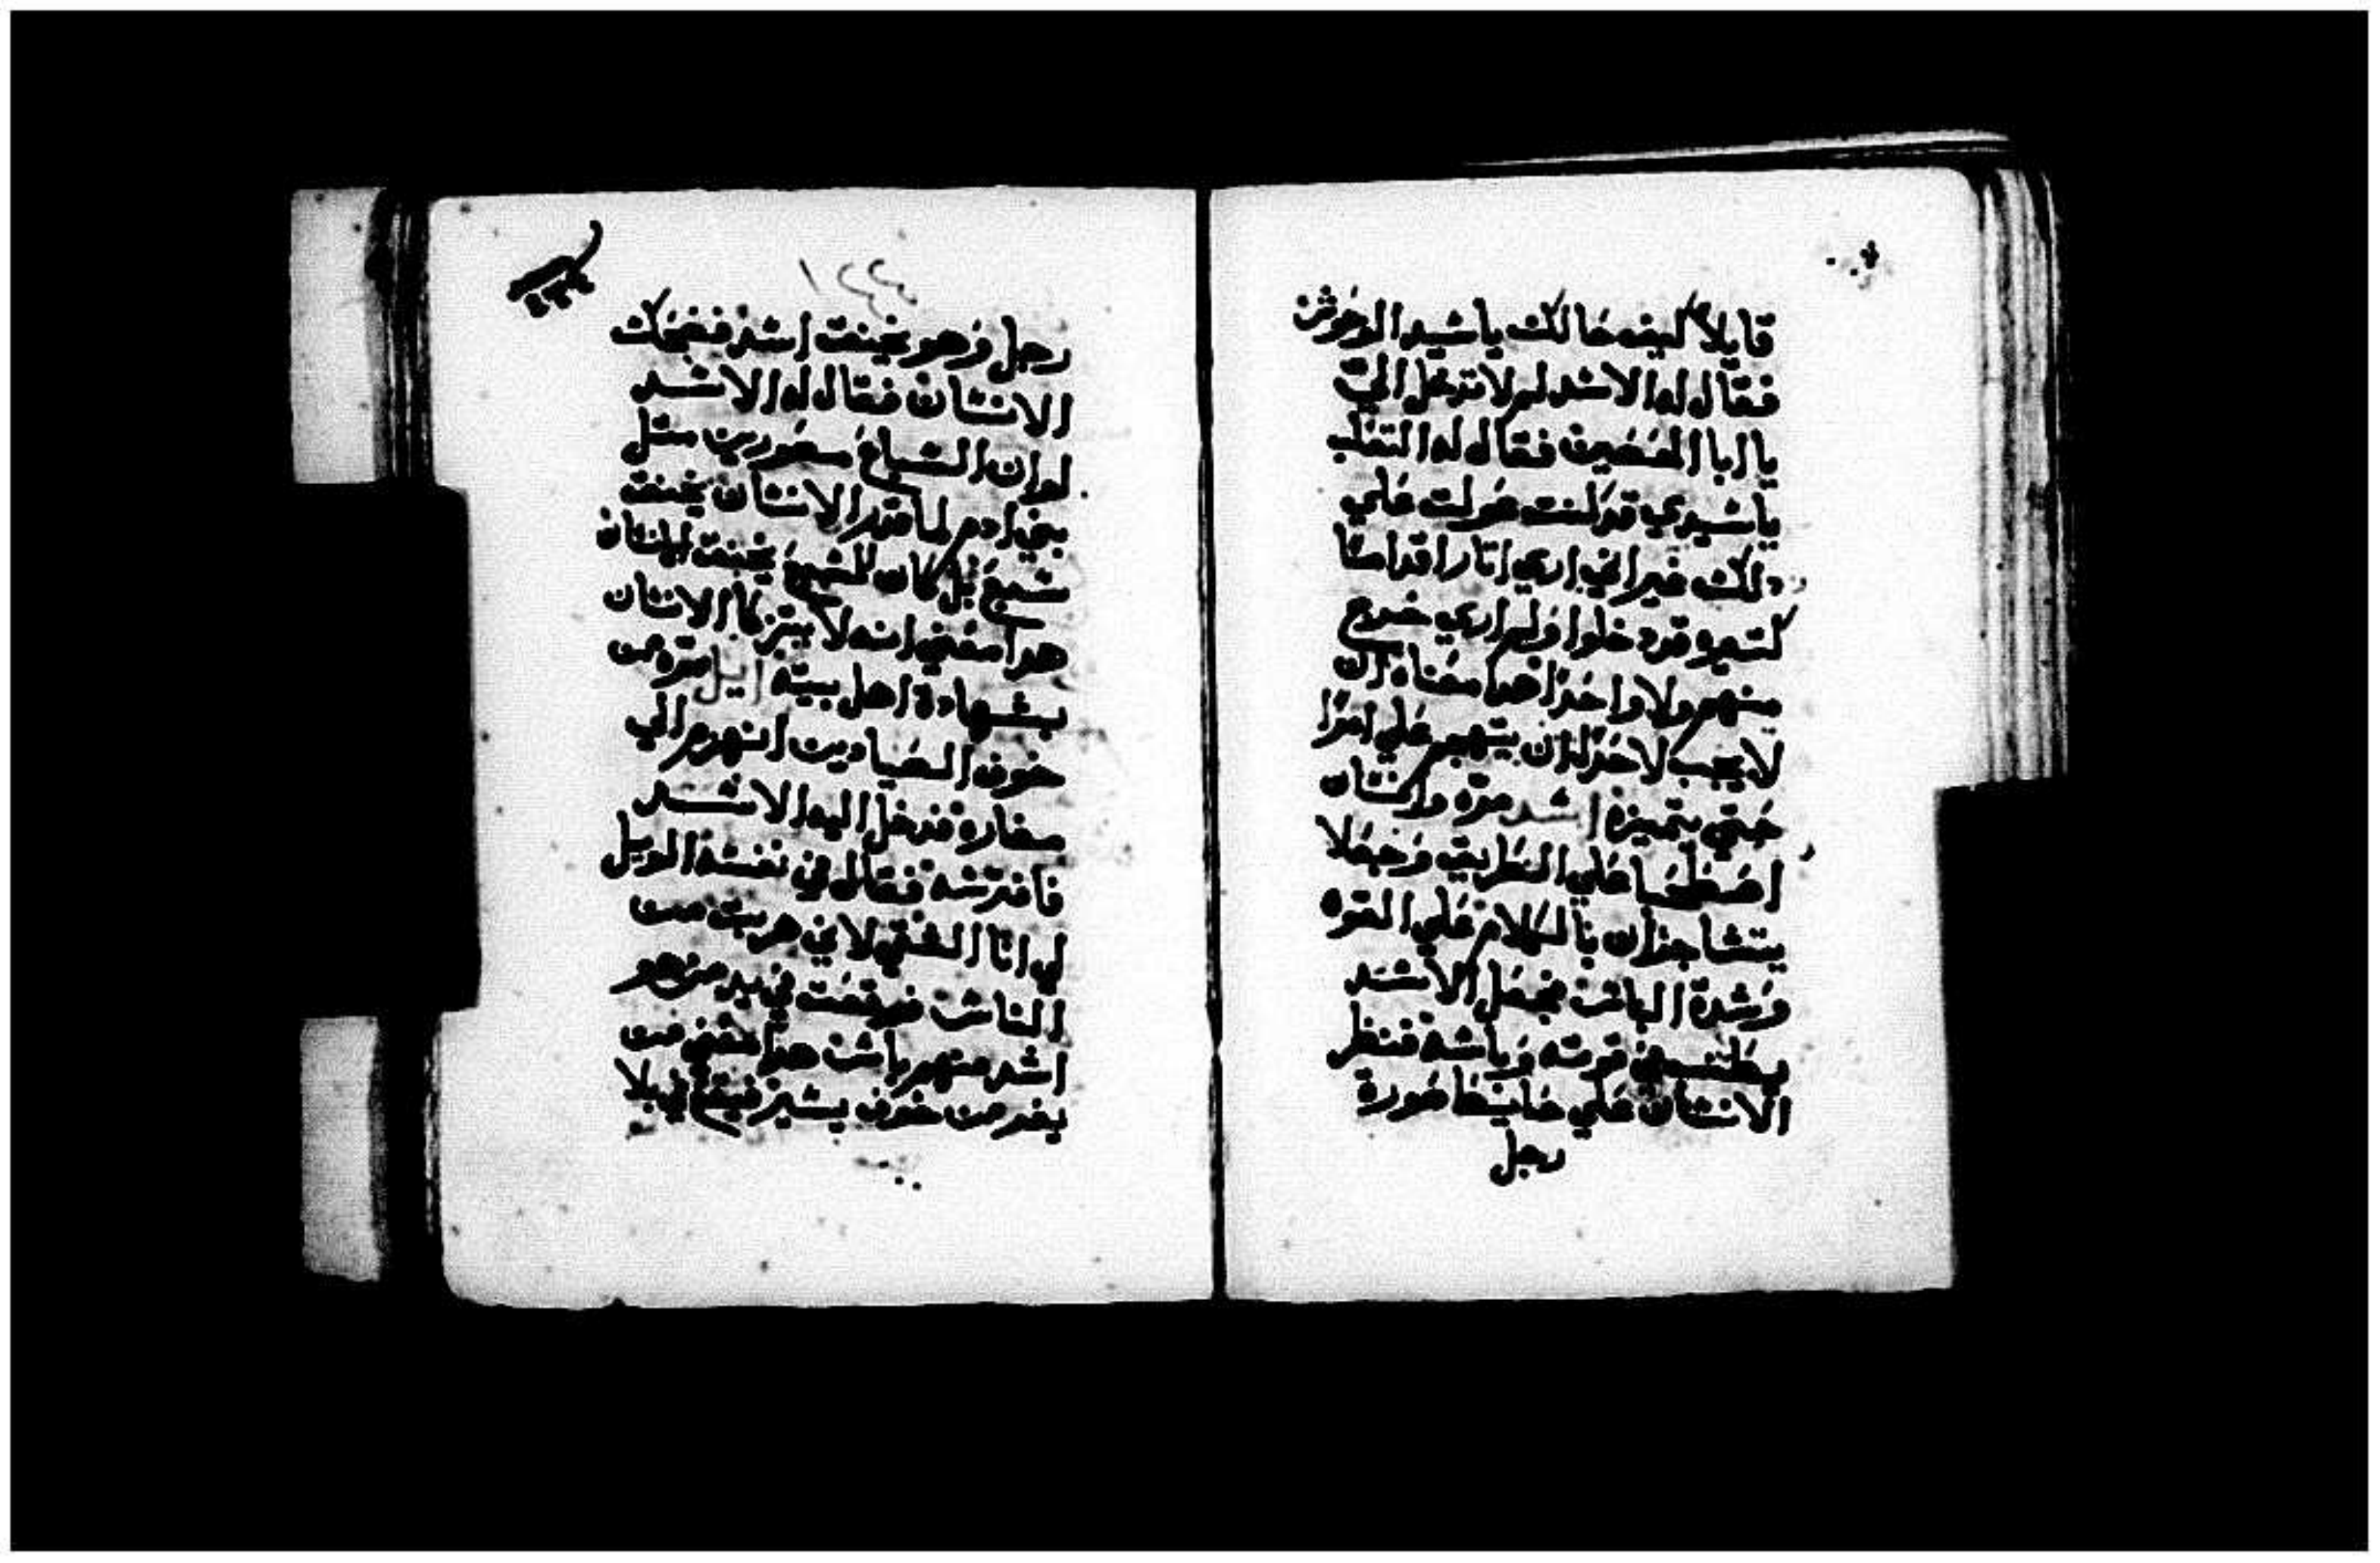 قايلاً كيف حالك ياسيد الوحوش
فقال له الاسد لم لا تدخل اليّ
يا ابا الحصين فقال له الثعلب
ياسيدي قد كنت عولت علي
ذلك غير اني اري اثار اقدامًا
كتيره قد دخلوا ولم اري خرج
منهم ولا واحدًا هدا معناه ان
لا يجب لاحدًا ان يتهجم علي امرًا
حتي يتميزه اسد مرّه وانسان
اصطحبا علي الطريق وجعلا
يتشاجران بالكلام علي القوه
وشدة الباس فجعل الاسد
يطنب في قوته وباسه فنظر
الانسان علي حايط صورة
رجل
١٤٤
رجل وهو يخنق اسد فضحك
الانسان فقال له الاسد
لو ان السباع مصورين متل
بني ادم لما قدر الانسان يخنق
سبع بل كان السبع يخنق الانسان
هدا معني انه لا يتزكا الانسان
بشهادة اهل بيته ايل مرّه من
خوف الصيادين انهزم الي
مغاره فدخل اليه الاسد
فافترسه فقال في نفسه الويل
لي انا الشقي لاني هربت من
الناس فوقعت في يد من هو
اشد منهم باس هدا معني من
يفر من خوف يسير فيقع في بلا